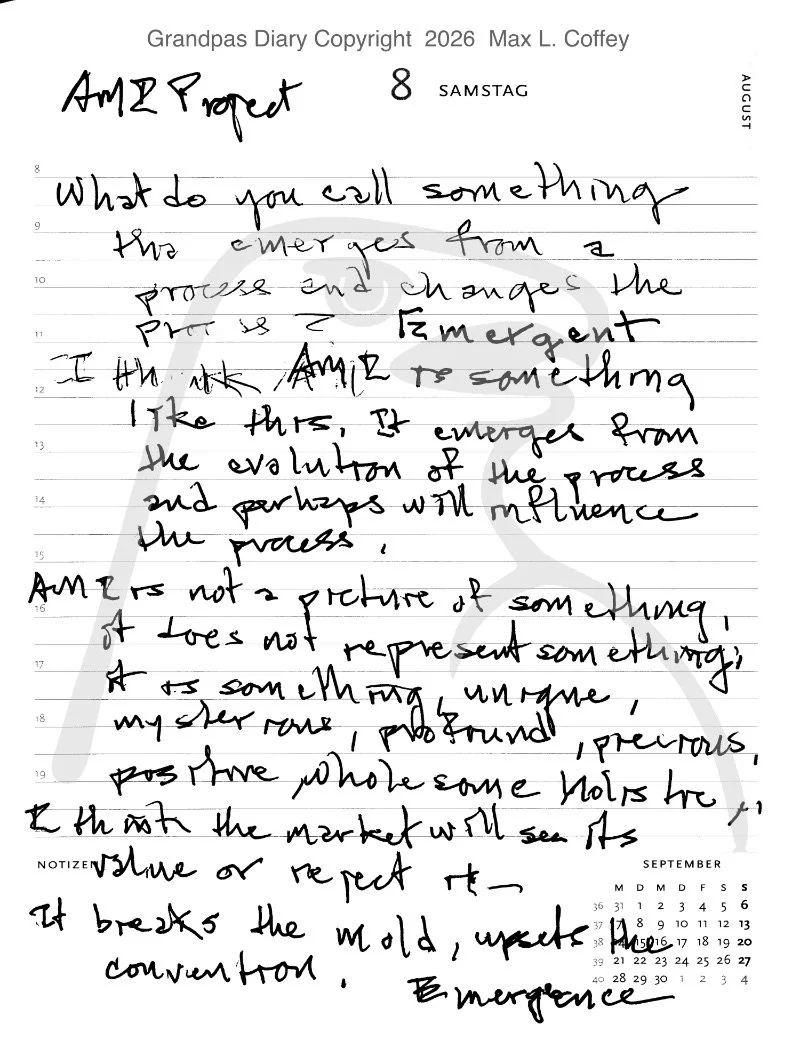 Grandpas Diary Copyright 2026 Max L. Coffey
AMI Project
8 SAMSTAG
AUGUST
8
What do you call something
9
tha emerges from a
10
process and changes the
process? Emergent
11
I think AMI is something
12
like this. It emerges from
13
the evolution of the process
14
and perhaps will influence
the process.
15
AMI is not a picture of something,
16
it does not represent something,
17
it is something, unique,
18
mysterious, profound, precious,
19
positive, wholesome holistic
I think the market will see its
NOTIZEN
value or reject it —
It breaks the mold, upsets the
convention.
Emergence
SEPTEMBER
M D M D F S S
36 31 1 2 3 4 5 6
37 7 8 9 10 11 12 13
38 14 15 16 17 18 19 20
39 21 22 23 24 25 26 27
40 28 29 30 1 2 3 4